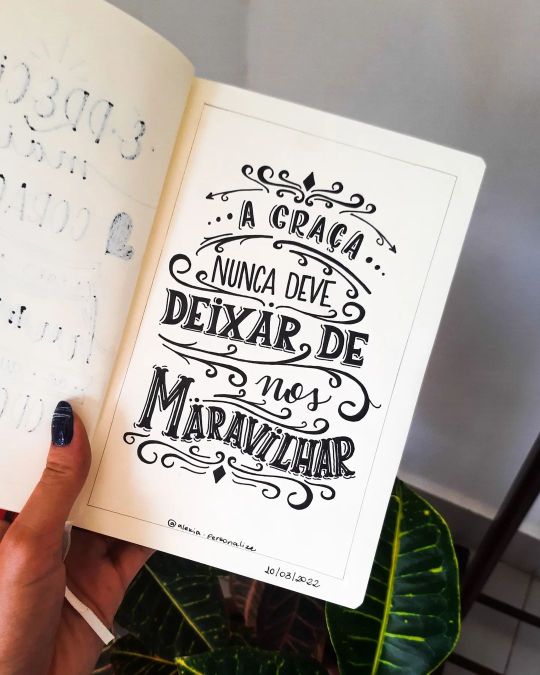 A GRAÇA
NUNCA DEVE
DEIXAR DE
nos
MARAVILHAR
@alexia.personalize
20/03/2022